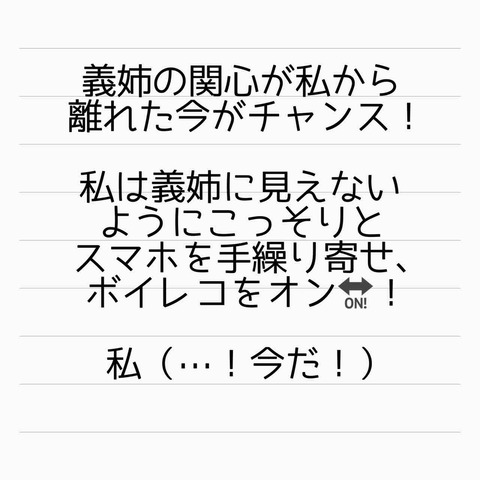 義姉の関心が私から
離れた今がチャンス！
私は義姉に見えない
ようにこっそりと
スマホを手繰り寄せ、
ボイレコをオン🔛！
私（…！今だ！）